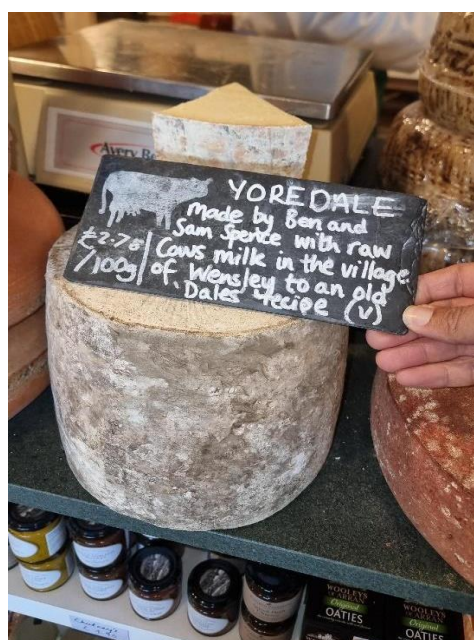 Avery
YOREDALE
Made by Ben and
Sam Spence with raw
Cows milk in the village
of Wensley to an old
Dales recipe (v)
/100g
WOOLEYS
OF ARRAN
Original
OATIES
WOOLEYS
OF ARRAN
Original
OATIES